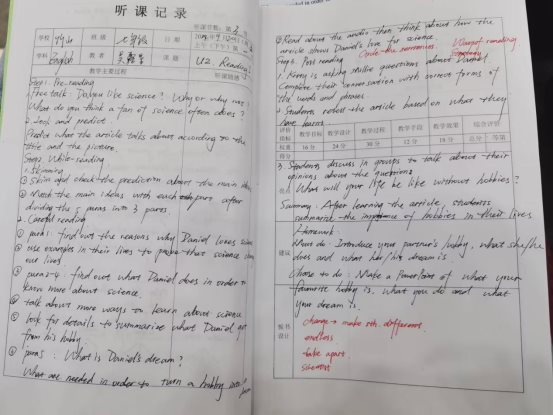 听课记录
学校
班级
七年级
日期
学科
English
教者
课题
U2. Reading
教学主要过程
Step 1. Pre-reading
1. Free talk: Do you like science? Why or why not?
What do you think a fan of science often does?
2. Look and predict
Predict what the article talks about according to the
title and the picture.
Step 2. While-reading
1. Skimming
① Skim and check the prediction about the main idea
② Match the main ideas with each part after
dividing the 5 paras into 3 parts.
2. Careful reading
① para1: find out the reasons why Daniel loves science
② use examples in their lives to prove that science
our lives
③ para2-4: find out what Daniel does in order to
know more about science.
④ talk about more ways to learn about science
⑤ look for details to summarize what Daniel
from his hobby
⑥ para5: What is Daniel's dream?
What are needed in order to turn a hobby into
⑦ Read about the audio then think about how the
article shows Daniel's love for science.
Step 3. Post reading
1. Kitty is asking Millie questions about Daniel.
Complete their conversation with correct forms of
the words and phrases
2. Students retell the article based on what they
have learnt
评价指标
教学目标
教学设计
教学过程
教学手段
教学效果
综合评价
权重
16 分
24 分
30 分
12 分
18 分
总分
等第
得分
3. Students discuss in groups to talk about their
opinions about the questions
What will your life be like without hobbies?
Summary: After learning the article, students
summarize the importance of hobbies in their lives
Homework:
Must do: Introduce your partner's hobby, what she/he
does and what her/his dream is.
建议
Choose to do: Make a PowerPoint of what your
favourite hobby is, what you do and what
your dream is.
板书设计
change → make sth. different
endless
take apart
scientist